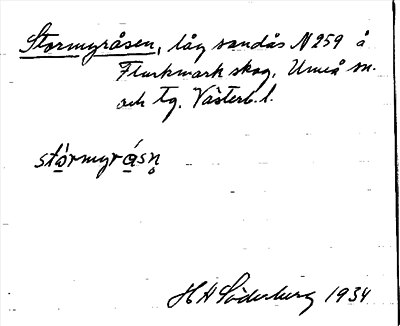 Stormyråsen, låg sandås N259 å
Flurkmark skog, Umeå sn.
och tg. Västerb. l.
stórmyrásn̥
H H Söderberg 1934